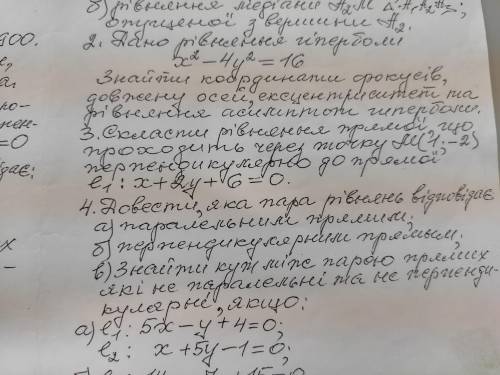 б) рівняння медіани A₂M Δ A₁A₂A₃,
опущеної з вершини A₂.
900.
2. Дано рівняння гіперболи
x² - 4y² = 16
Знайти координати фокусів,
довжену осей, ексцентриситет та
рівняння асимптот гіперболи.
3. Скласти рівняння прямої, що
проходить через точку M(1; -2)
перпендикулярно до прямої
=0
ℓ₁: x + 2y + 6 = 0.
4. Довести, яка пара рівнянь відповідає
а) паралельним прямим;
б) перпендикулярним прямым;
в) Знайти кут між парою прямих
які не паралельні та не перпенди-
кулярні, якщо:
а) ℓ₁: 5x - y + 4 = 0;
ℓ₂: x + 5y - 1 = 0;